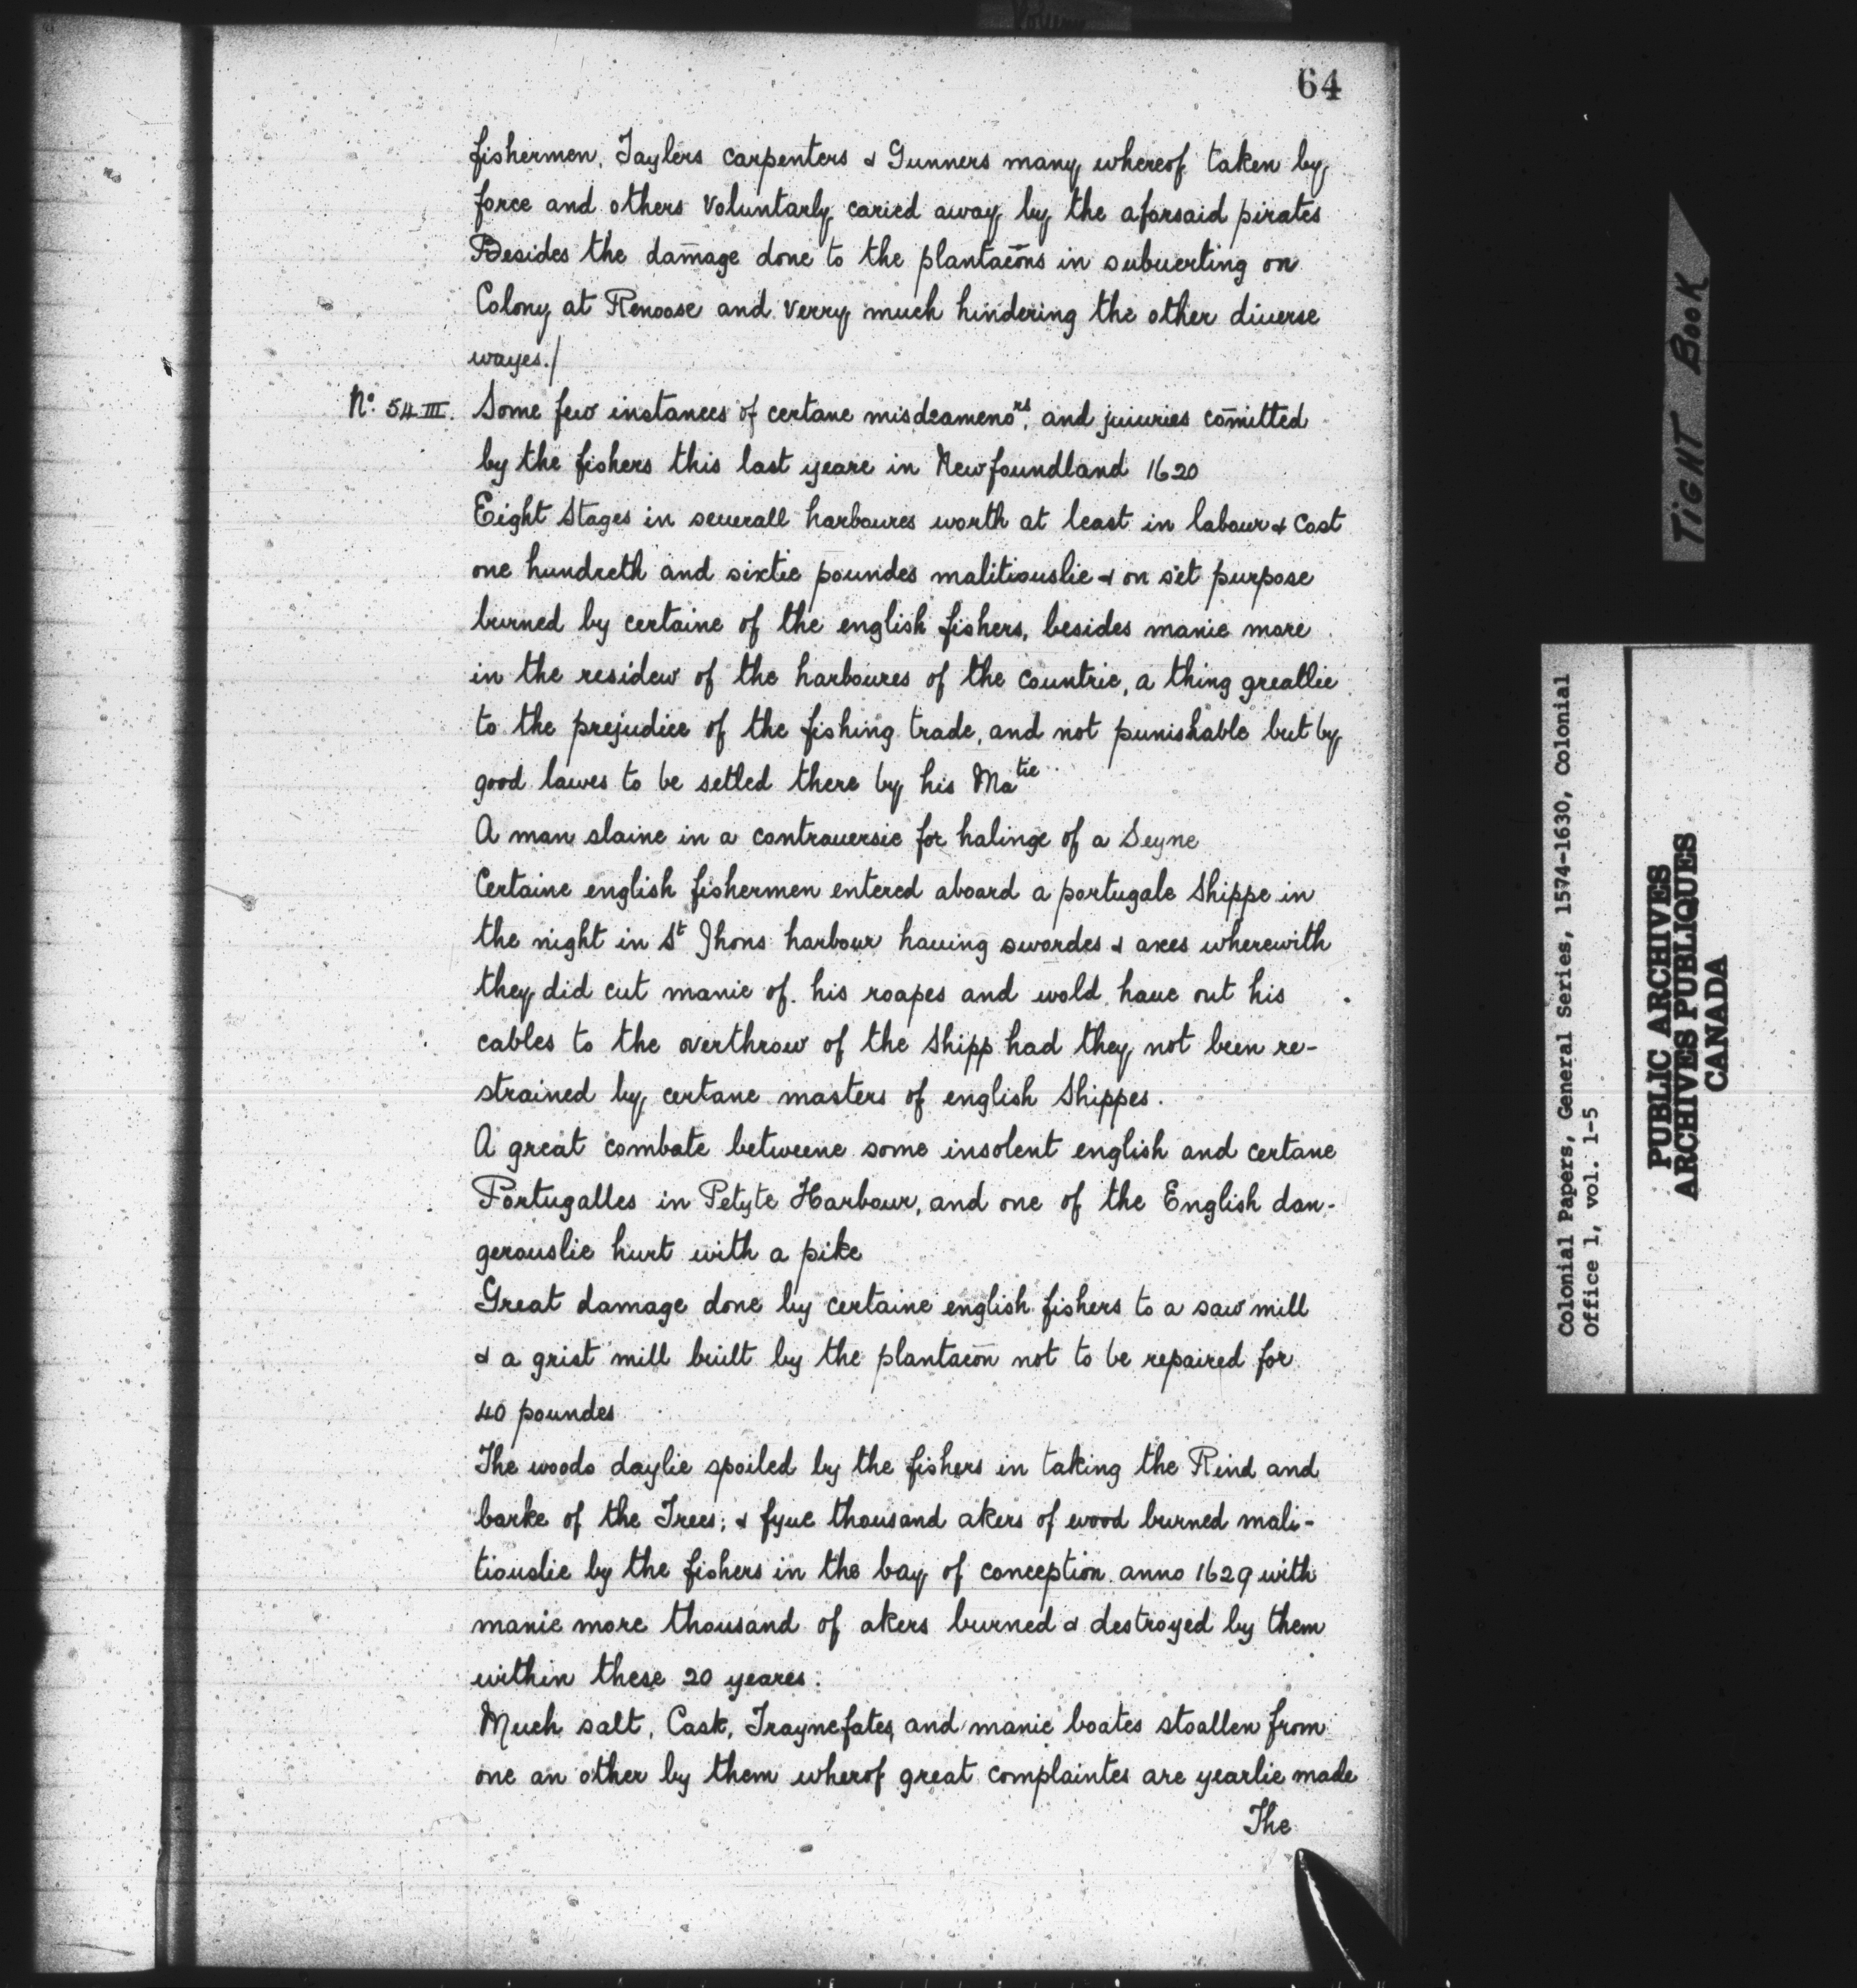 Volume
64
fishermen, Taylers carpenters & Gunners many whereof taken by
force and others voluntarly caried away by the aforsaid pirates
Besides the dam̄age done to the plantacōns in subuerting on
Colony at Renoose and verry much hindering the other diuerse
wayes./
No. 54 III. Some few instances of certane misdeamenors, and juiuries com̄itted
by the fishers this last yeare in Newfoundland 1620
Eight Stages in seuerall harboures worth at least in labour & Cost
one hundreth and sixtie poundes malitiouslie & on set purpose
burned by certaine of the english fishers, besides manie more
in the residew of the harboures of the countrie, a thing greatlie
to the prejudice of the fishing trade, and not punishable but by
good lawes to be setled there by his Matie
A man slaine in a controuersie for halinge of a Seyne
Certaine english fishermen entered aboard a portugale Shippe in
the night in St Jhons harbour hauing swordes & axes wherewith
they did cut manie of his roapes and wold haue out his
cables to the overthrow of the Shipp had they not been re-
strained by certane masters of english Shippes.
A great combate betweene some insolent english and certane
Portugalles in Petyte Harbour, and one of the English dan-
gerouslie hurt with a pike
Great damage done by certaine english fishers to a saw mill
& a grist mill built by the plantacōn not to be repaired for
40 poundes
The woods daylie spoiled by the fishers in taking the Rind and
barke of the Trees; & fyue thousand akers of wood burned mali-
tiouslie by the fishers in the bay of conception anno 1629 with
manie more thousand of akers burned & destroyed by them
within these 20 yeares.
Much salt, Cask, Traynefates, and manie boates stoallen from
one an other by them wherof great complaintes are yearlie made
The
TIGHT BOOK
Colonial Papers, General Series, 1574-1630, Colonial
Office 1, vol. 1-5
PUBLIC ARCHIVES
ARCHIVES PUBLIQUES
CANADA